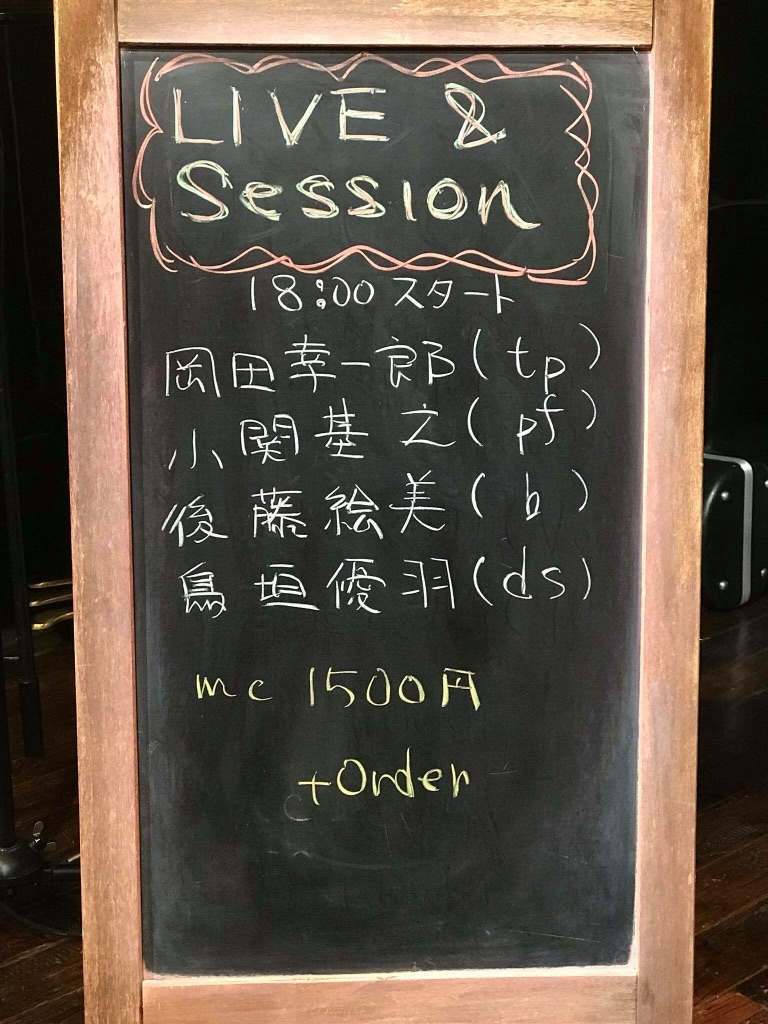 LIVE &
Session
18:00 スタート
岡田幸一郎(tp)
小関基之(pf)
後藤絵美(b)
鳥垣優羽(ds)
mc 1500円
+Order